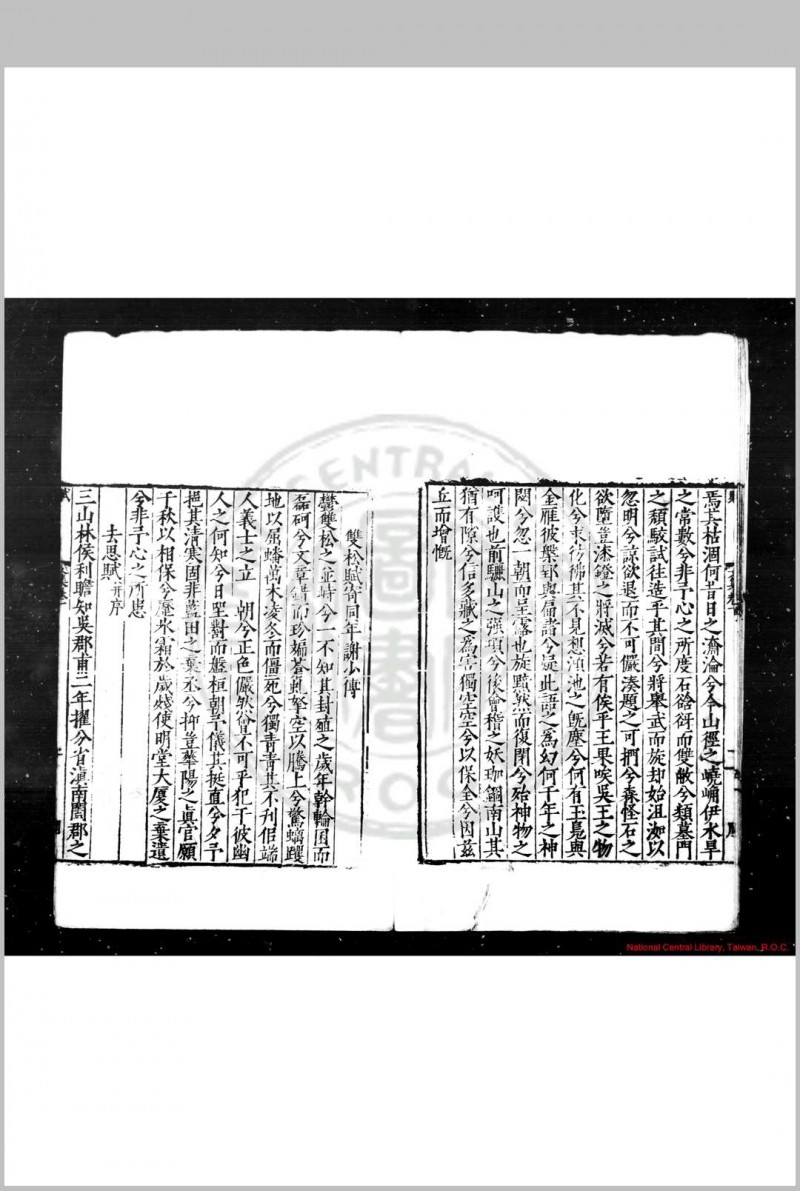 焉其枯涸何昔日之瀰淪兮今山徑之嶢崅伊水旱
之常數兮非予心之所度石硲谺而雙敞兮類墓門
之頹駮試往造乎其間兮將舉武而旋却始沮洳以
忽明兮諒欲退而不可儼湊題之可捫兮森怪石之
欲墮豈漆鐙之將滅兮若有俟乎王果唉吳王之物
化兮求彷彿其不見想澒池之旣塵兮何有玉鳧與
金雁彼槃郢與扁諸兮疑此語之為幻何千年之神
閟兮忽一朝而呈露也旋黯然而復閉兮殆神物之
呵護也前驪山之强項兮後會稽之妖珈錮南山其
猶有隙兮信多藏之為害獨空空兮以保全兮因茲
丘而增慨
雙松賦寄同年謝少傅
鬱雙松之並峙兮一不知其封殖之歲年幹輪囷而
磊砢兮文章鬱而珍編蒼虬拏空以騰上兮驚螭躩
地以屈蟠萬木凌冬而僵死兮獨青青其不刋佀端
人義士之立 朝兮正色儼然曾不可乎犯干彼幽
人之何知兮日坚對而盤桓朝予儀其挺直兮夕予
挹其清寒固非藍田之棄丞兮抑豈華陽之眞官願
千秋以相保兮歷氷霜於歲殘使明堂大厦之棄遺
兮非予心之所患
去思賦并序
三山林侯利瞻知吳郡甫二年擢分省滇南闔郡之
National Central Library, Taiwan, R.O.C.